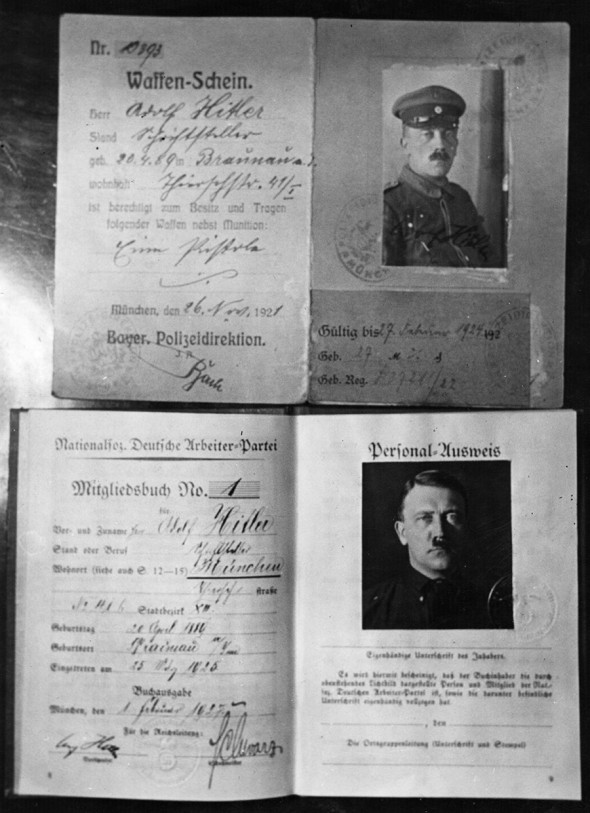 Nr.
Waffen-Schein.
Herr Adolf Hitler
Stand Schriftsteller
geb. 20.4.89 in Braunau a. I.
wohnhaft Thierschstr. 41/I
ist berechtigt zum Besitz und Tragen
folgender Waffen nebst Munition:
Eine Pistole
München, den 26. Nov. 1921
Bayer. Polizeidirektion.
Gültig bis 27. Februar 192
Geb.
Geb. Reg.
Nationalsoz. Deutsche Arbeiter-Partei
Mitgliedsbuch No. 1
für
Vor- und Zuname Adolf Hitler
Stand oder Beruf
Wohnort (siehe auch S. 12—15) München
straße
No. 41 Stadtbezirk XIII
Geburtstag 20 April 1889
Geburtsort Braunau
Eingetreten am 1925
Buchausgabe
München, den 1 Februar 1927
Für die Reichsleitung:
Schwarz
8
Personal-Ausweis
Eigenhändige Unterschrift des Inhabers.
Es wird hiermit bescheinigt, daß der Buchinhaber die durch
obenstehendes Lichtbild dargestellte Person und Mitglied der Nat.-
soz. Deutschen Arbeiter-Partei ist, sowie die darunter befindliche
Unterschrift eigenhändig vollzogen hat.
, den
Die Ortsgruppenleitung (Unterschrift und Stempel)
9